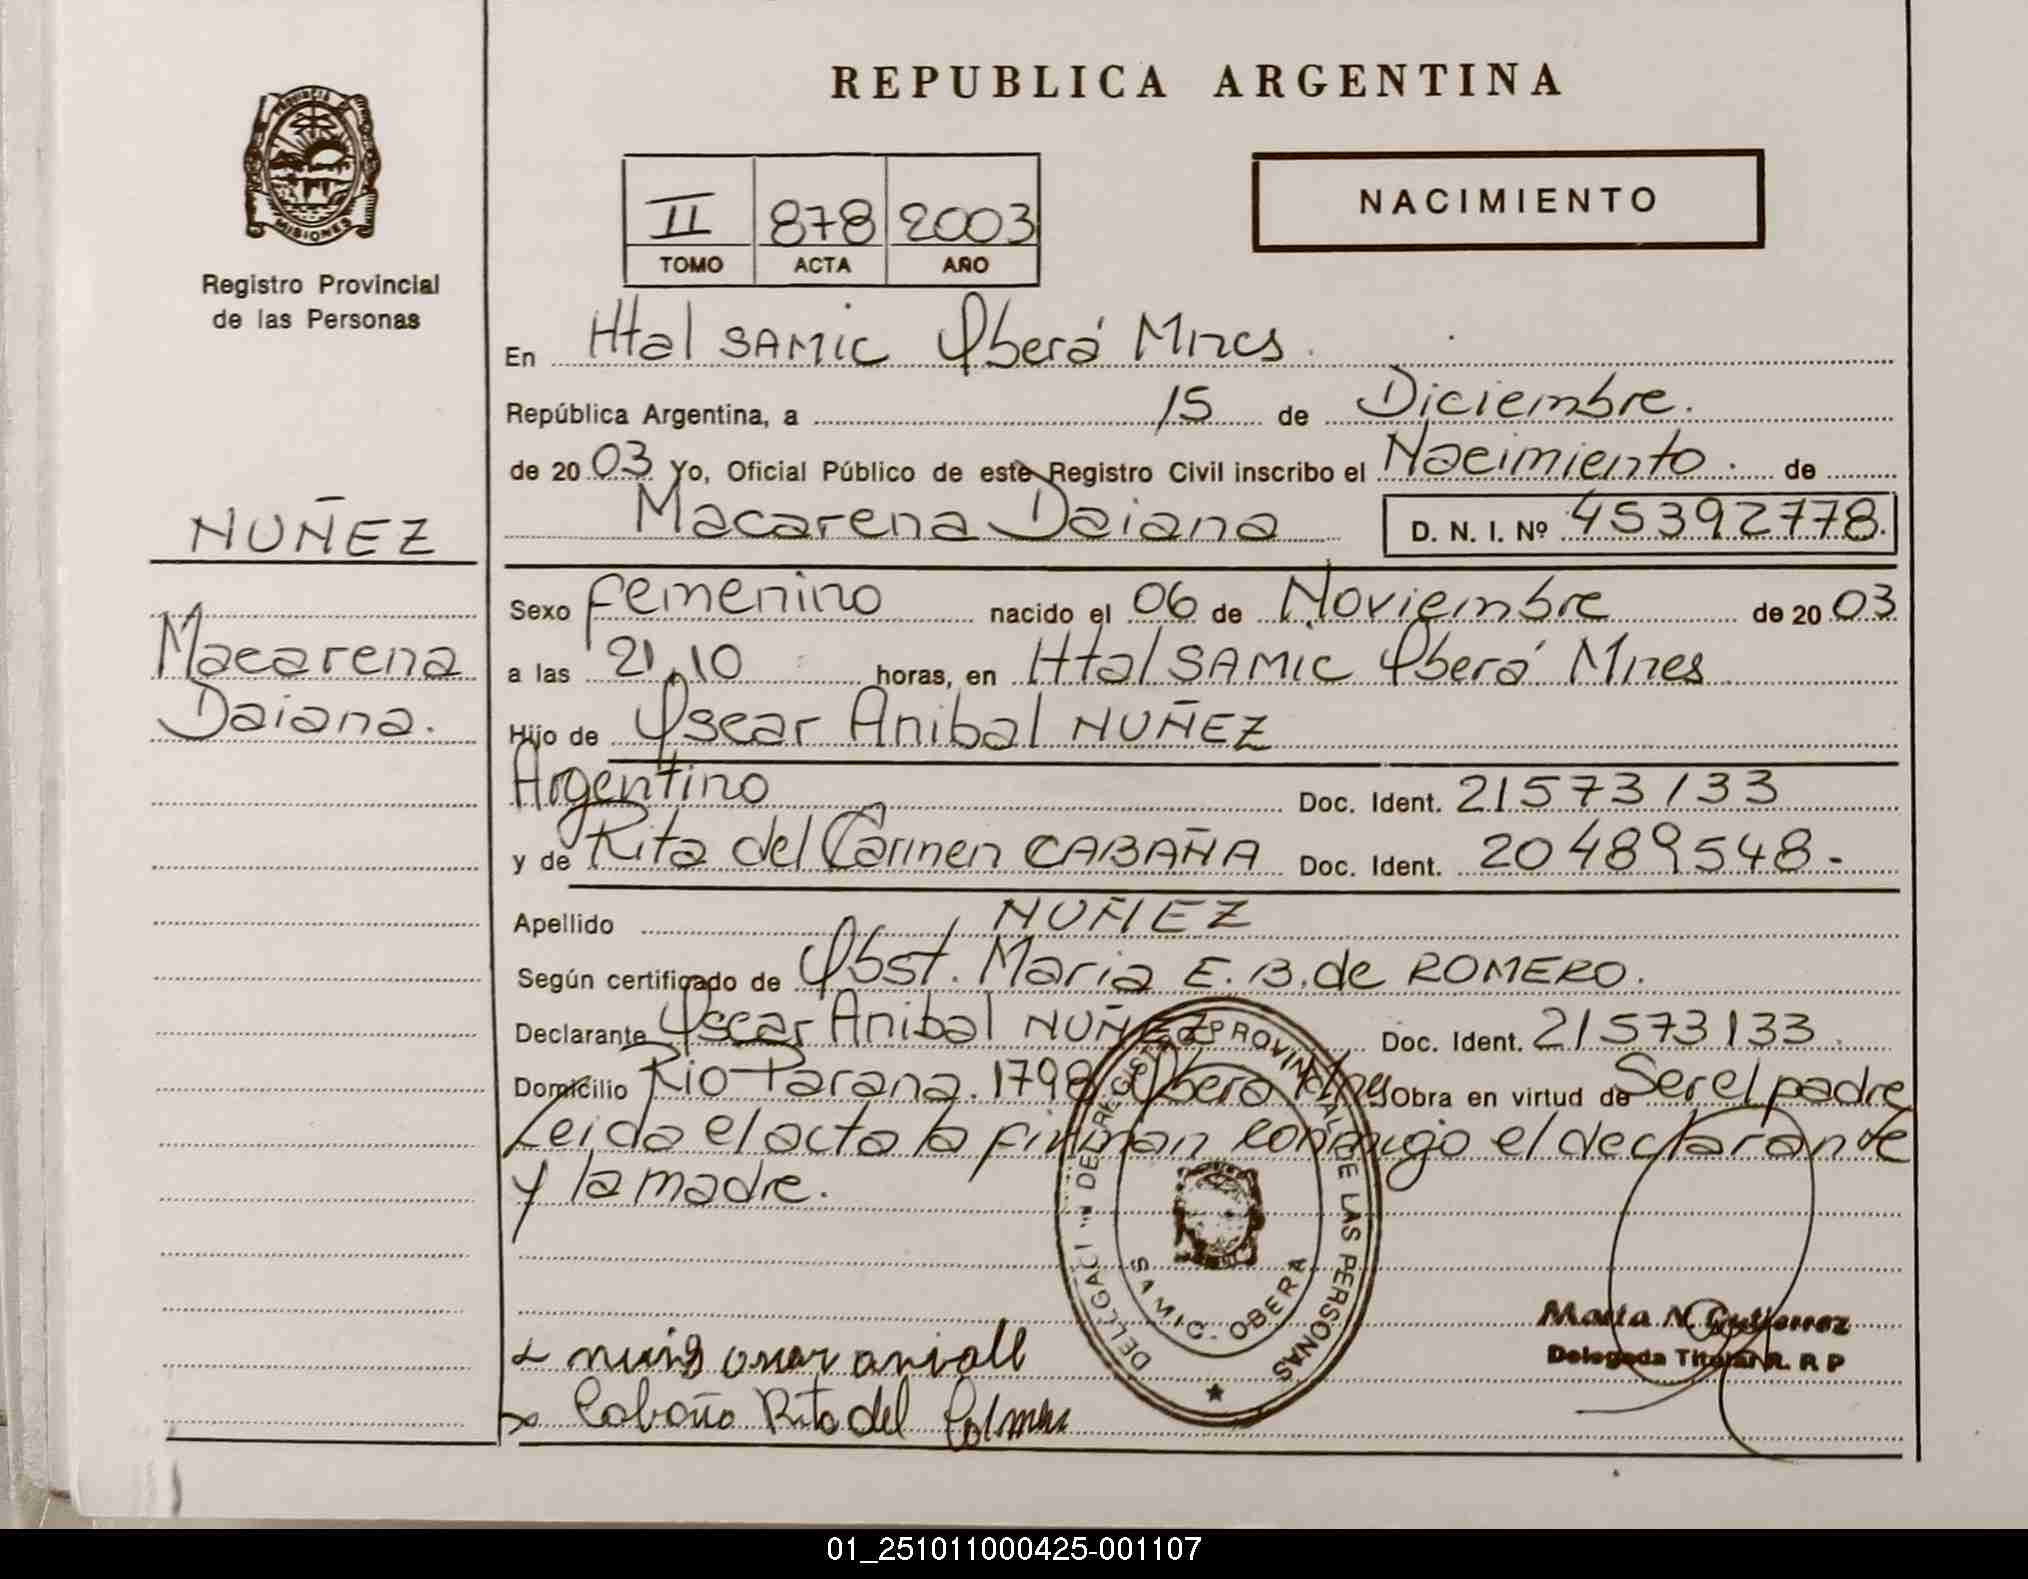 REPUBLICA ARGENTINA
PROVINCIA DE
MISIONES
Registro Provincial
de las Personas
II 878 2003
TOMO ACTA AÑO
NACIMIENTO
En Htal SAMIC Oberá Mnes.
República Argentina, a 15 de Diciembre.
de 20 03 Yo, Oficial Público de este Registro Civil inscribo el Nacimiento. de
Macarena Daiana D. N. I. Nº 45392778.
NUÑEZ
Macarena
Daiana.
Sexo femenino nacido el 06 de Noviembre de 20 03
a las 21,10 horas, en Htal SAMIC Oberá Mnes
Hijo de Oscar Anibal NUÑEZ
Argentino Doc. Ident. 21573133
y de Rita del Carmen CABAÑA Doc. Ident. 20489548.-
Apellido NUÑEZ
Según certificado de Obst. Maria E. B. de ROMERO.
Declarante Oscar Anibal NUÑEZ Doc. Ident. 21573133
Domicilio Rio Parana. 1798 Obera Mnes Obra en virtud de Ser el padre
Leida el acta la firman conmigo el declarante
y la madre.
DELEGACION DEL REGISTRO PROVINCIAL DE LAS PERSONAS
SAMIC. OBERA
Marta N. Gutierrez
Delegada Titular R. R P
Cabaña Rita del
01_251011000425-001107